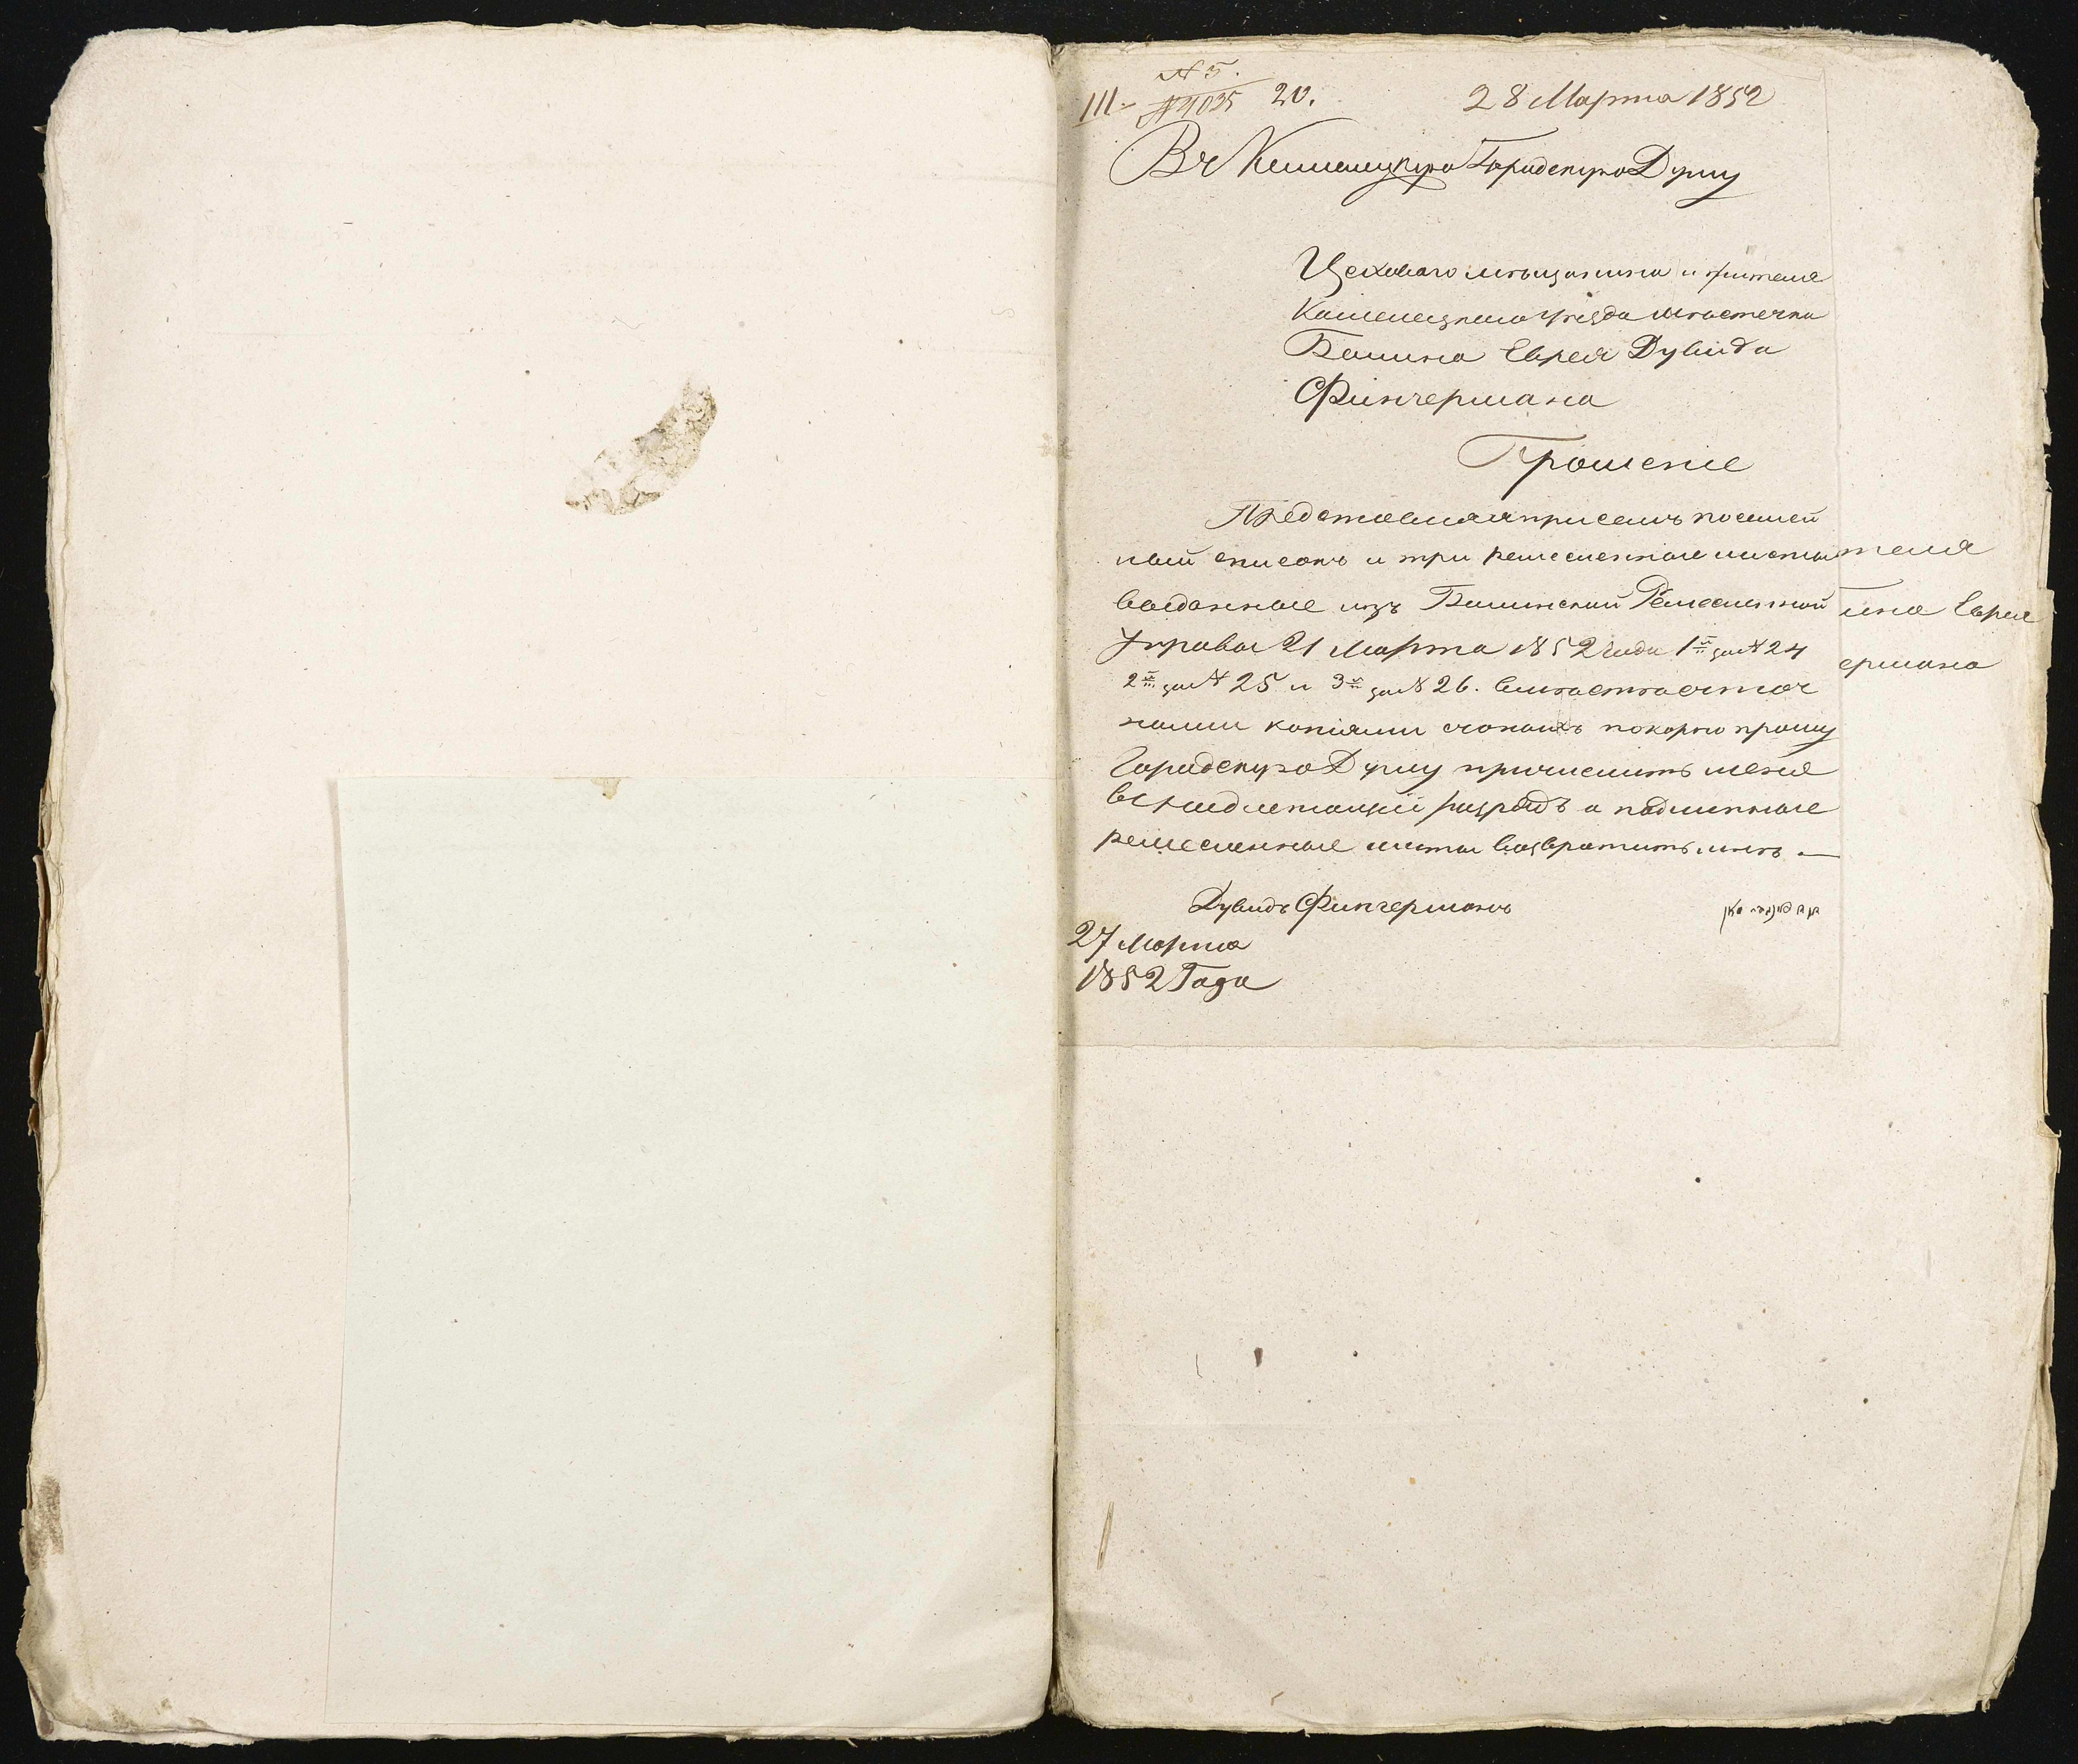 № 5.
III. № 1035 20. 28 Марта 1852
Въ Каменецкую Городскую Думу
Цеховаго мѣщанина и жителя
Каменецкаго уѣзда мѣстечка
Балина Еврея Дувида
Фингермана
Прошеніе
Представляя присемъ посемей
ный списокъ и три ремесленные листы
выданные изъ Балинской Ремесленной
Управы 21 Марта 1852 года 1й за № 24
2й за № 25 и 3й за № 26. вмѣстѣ съ точ
ными копіями съ оныхъ покорно прошу
Городскую Думу причислить меня
въ надлежащій разрядъ а подлинные
ремесленные листы возвратить мнѣ. —
Дувидъ Фингерманъ
27 Марта
1852 Года
теля
лина Еврея
ермана